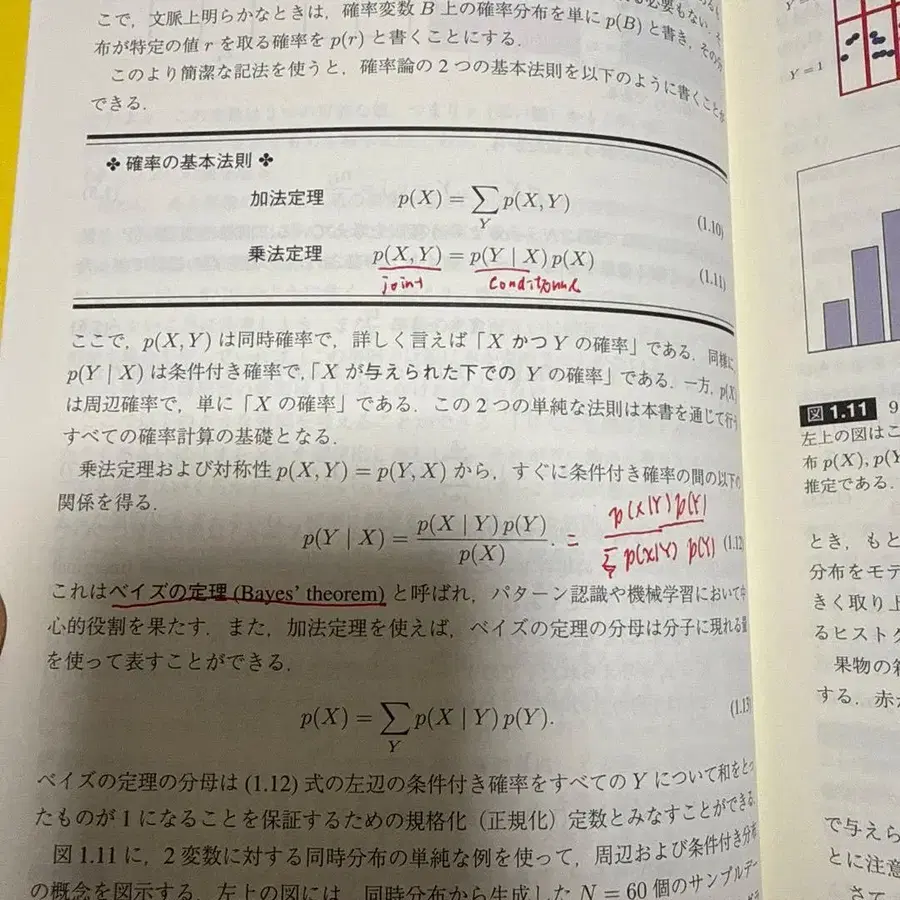 こで，文脈上明らかなときは，確率変数 B 上の確率分布を単に p(B) と書き，その分
布が特定の値 r を取る確率を p(r) と書くことにする．
このより簡潔な記法を使うと，確率論の 2 つの基本法則を以下のように書くことが
できる．
✤ 確率の基本法則 ✤
加法定理 p(X) = ∑_Y p(X, Y) (1.10)
乗法定理 p(X, Y) = p(Y | X) p(X) (1.11)
joint conditional
ここで，p(X, Y) は同時確率で，詳しく言えば「X かつ Y の確率」である．同様に，
p(Y | X) は条件付き確率で，「X が与えられた下での Y の確率」である．一方，p(X)
は周辺確率で，単に「X の確率」である．この 2 つの単純な法則は本書を通じて行う
すべての確率計算の基礎となる．
乗法定理および対称性 p(X, Y) = p(Y, X) から，すぐに条件付き確率の間の以下の
関係を得る．
p(Y | X) = p(X | Y) p(Y) / p(X) . = p(X|Y) p(Y) / ∑_Y p(X|Y) p(Y) (1.12)
これはベイズの定理 (Bayes' theorem) と呼ばれ，パターン認識や機械学習において中
心的役割を果たす．また，加法定理を使えば，ベイズの定理の分母は分子に現れる量
を使って表すことができる．
p(X) = ∑_Y p(X | Y) p(Y). (1.13)
ベイズの定理の分母は (1.12) 式の左辺の条件付き確率をすべての Y について和をとっ
たものが 1 になることを保証するための規格化（正規化）定数とみなすことができる．
図 1.11 に，2 変数に対する同時分布の単純な例を使って，周辺および条件付き分布
の概念を図示する．左上の図には，同時分布から生成した N = 60 個のサンプルデー
Y = 1
図 1.11 9
左上の図はこ
布 p(X), p(Y
推定である．
とき，もと
分布をモデ
きく取り上
るヒストグ
果物の箱
する．赤
で与えら
とに注意
さて